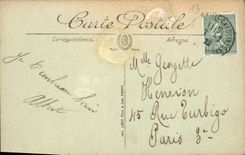 13
Carte Postale
Correspondance
Adresse
Je t'embrasse bien
Albert
Mlle Georgette
Henrion
45 Rue Turbigo
Paris 3e